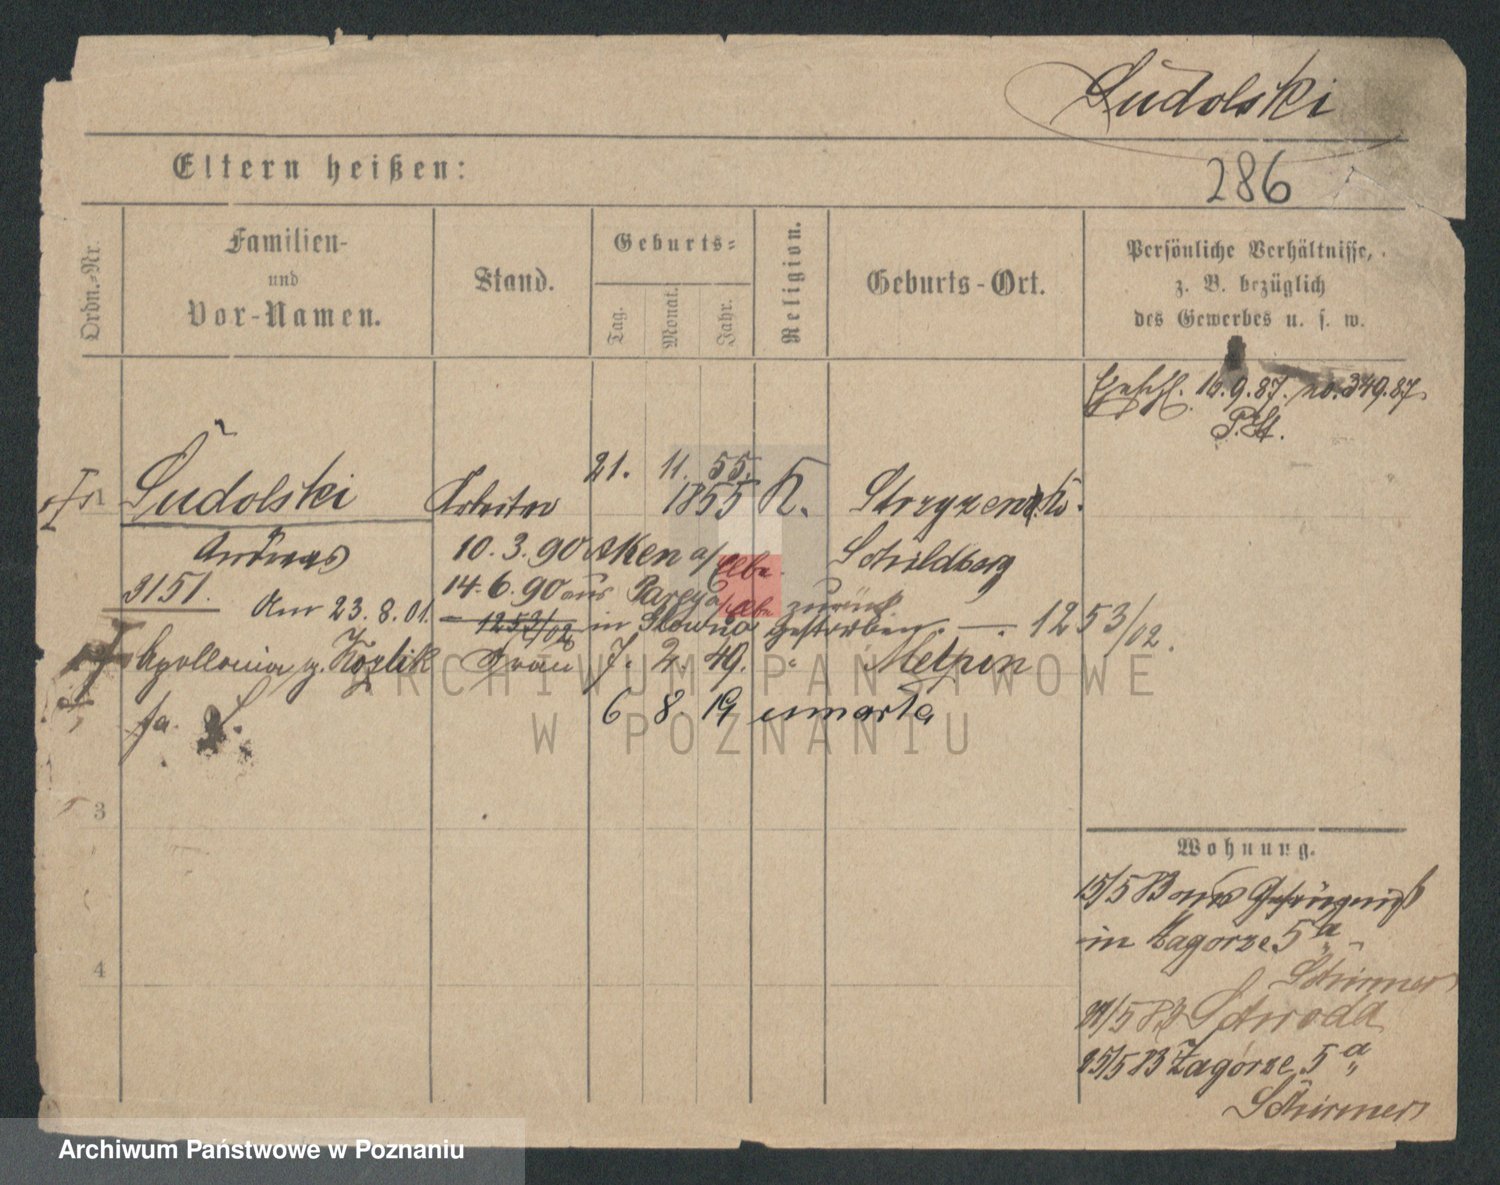 Sudolski
Eltern heißen:
286
Ordn.-Nr.
Familien-
und
Vor-Namen.
Stand.
Geburts-
Tag.
Monat.
Jahr.
Religion.
Geburts-Ort.
Persönliche Verhältnisse,
z. B. bezüglich
des Gewerbes u. s. w.
16.9.87. no. 349.87.
P. St.
1
Sudolski
Arbeiter
21. 11. 55.
1855
K.
Andreas
10. 3. 90 Aken a/Elbe
Schildberg
3151.
14. 6. 90 aus Parey a/Elbe zurück
Am 23. 8. 01.
1253/02
in Glowno gestorben. — 1253/02.
Apollonia g. Kozlik
Frau
7. 2. 49.
"
Melpin
fa.
6 8 19 umarła
3
4
Wohnung.
15/5 93 aus Gefängniß
in Zagorze 5a
Schirmer
21/5 93 Schroda
25/5 93 Zagorze 5a
Schirmer
ARCHIWUM PAŃSTWOWE
W POZNANIU
Archiwum Państwowe w Poznaniu